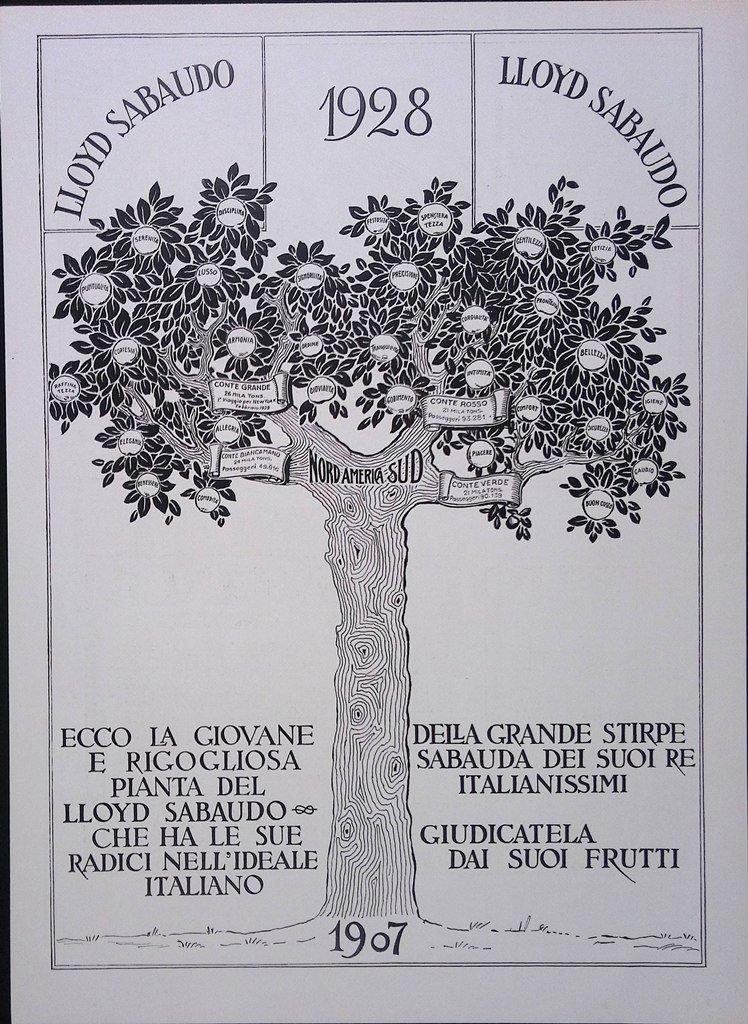 LLOYD SABAUDO
1928
LLOYD SABAUDO
DISCIPLINA
FESTOSITÀ
SPENSIERA
TEZZA
SERENITÀ
GENTILEZZA
LETIZIA
PUNTUALITÀ
LUSSO
SIGNORILITÀ
PRECISIONE
PRONTEZZA
CORTESIA
ARMONIA
ORDINE
TRANQUILLITÀ
CORDIALITÀ
BELLEZZA
RAFFINA
TEZZA
INTIMITÀ
CONTE GRANDE
26 MILA TONS.
1° Viaggio per NEW YORK
Febbraio 1928
GIOVIALITÀ
GODIMENTO
CONTE ROSSO
21 MILA TONS.
Passeggeri 93.281
COMFORT
IGIENE
ELEGANZA
ALLEGRIA
SICUREZZA
CONTE BIANCAMANO
24 MILA TONS.
Passeggeri 49.610
NORD AMERICA SUD
PIACERE
GAUDIO
BENESSERE
COMODITÀ
CONTE VERDE
21 MILA TONS.
Passeggeri 90.139
BUON GUSTO
ECCO LA GIOVANE
E RIGOGLIOSA
PIANTA DEL
LLOYD SABAUDO
CHE HA LE SUE
RADICI NELL'IDEALE
ITALIANO
DELLA GRANDE STIRPE
SABAUDA DEI SUOI RE
ITALIANISSIMI
GIUDICATELA
DAI SUOI FRUTTI
1907